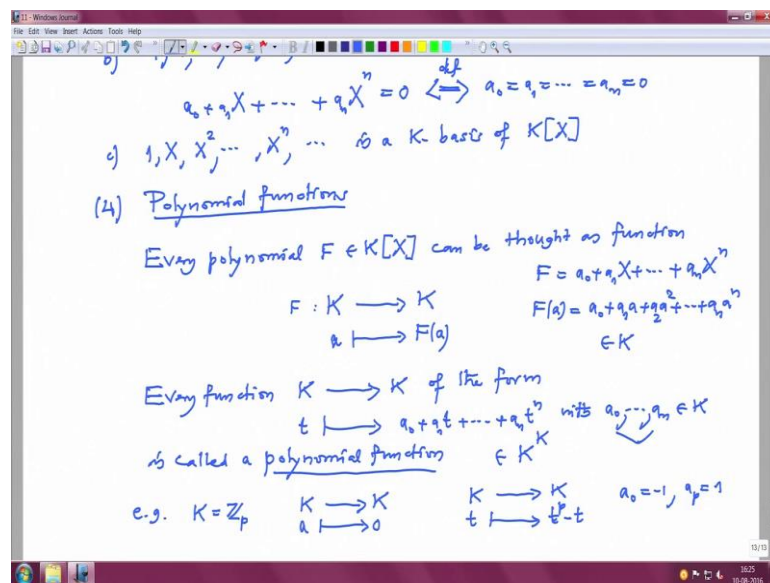 11 - Windows Journal
File Edit View Insert Actions Tools Help
b) 1,
a₀ + a₁X + ⋯ + aₙXⁿ = 0 ⟺ def a₀ = a₁ = ⋯ = aₙ = 0
c) 1, X, X², ⋯, Xⁿ, ⋯ is a K-basis of K[X]
(4) Polynomial functions
Every polynomial F ∈ K[X] can be thought as function
F = a₀ + a₁X + ⋯ + aₙXⁿ
F : K ⟶ K
F(a) = a₀ + a₁a + a₂a² + ⋯ + aₙaⁿ
a ⟼ F(a)
∈ K
Every function K ⟶ K of the form
t ⟼ a₀ + a₁t + ⋯ + aₙtⁿ with a₀, ⋯, aₙ ∈ K
is called a polynomial function ∈ K^K
e.g. K = ℤₚ K ⟶ K K ⟶ K a₀ = -1, aₚ = 1
a ⟼ 0 t ⟼ tᵖ - t
13/13
16:25
10-08-2016